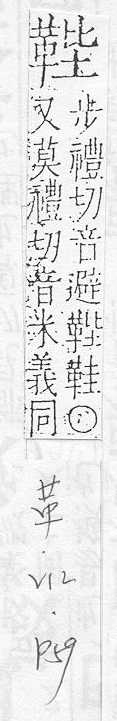 步禮切音避鞋○
又莫禮切音米義同
革.V12.P59